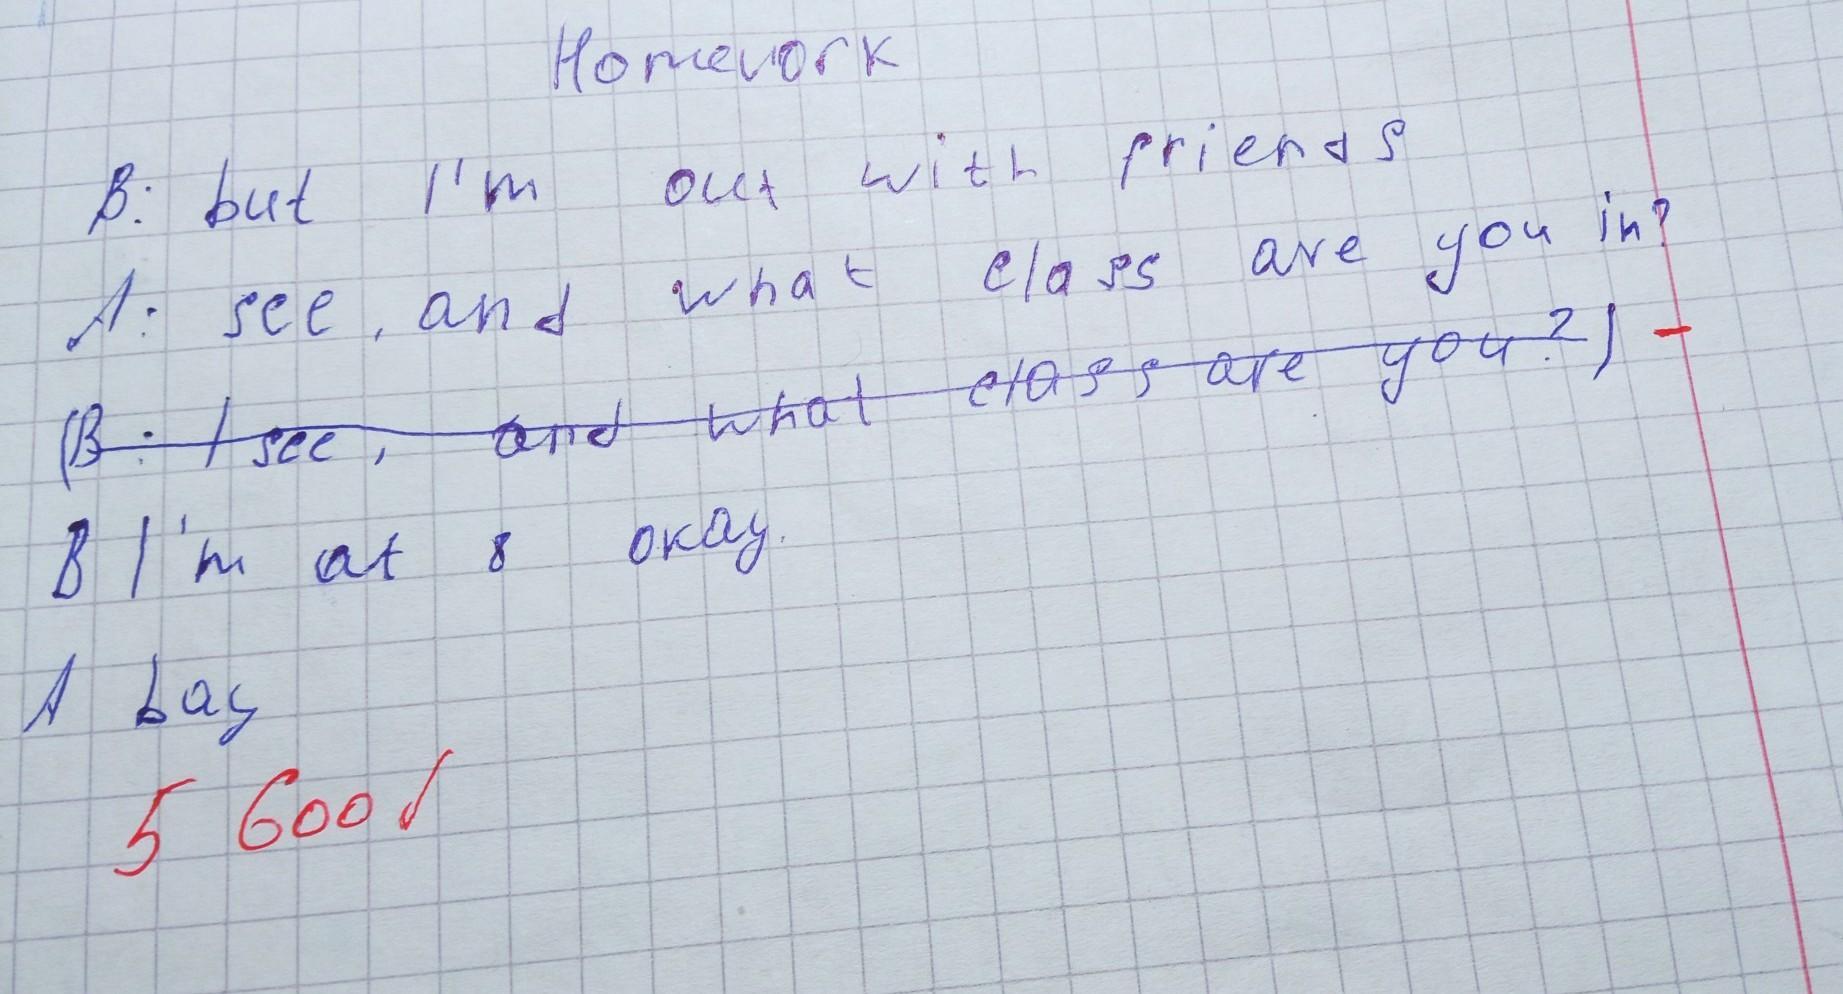 Homework
B: but I'm out with friends
A: see, and what class are you in?
(B: I see, and what class are you?)
B I'm at 8 okay.
A bay
5 Good